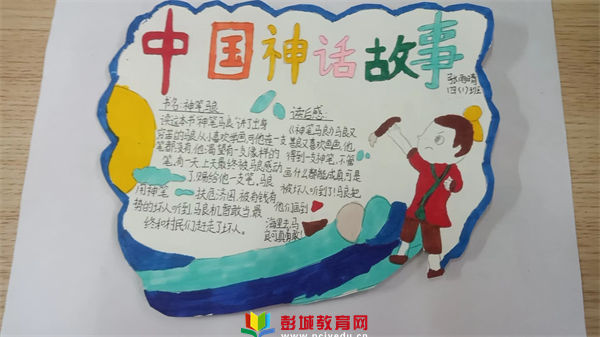 中国神话故事
张雨晴
四(1)班
书名:神笔马良
读这本书《神笔马良》讲了出身
穷苦的马良从小喜欢学画,可他连一支
笔都没有,他渴望有一支像样的
笔,有一天上天最终被马良感动
了,赐给他一支笔,马良
用神笔 扶危济困,被有钱有
势的坏人听到,马良机智敢当,最
终和村民们赶走了坏人。
读后感
《神笔马良》马良又
善良又喜欢画画,他
得到一支神笔,不管
画什么都能成真,可是
被坏人听到了!马良把
他们画到
海里去,马
良可真有
彭城教育网
www.pcjyedu.cn